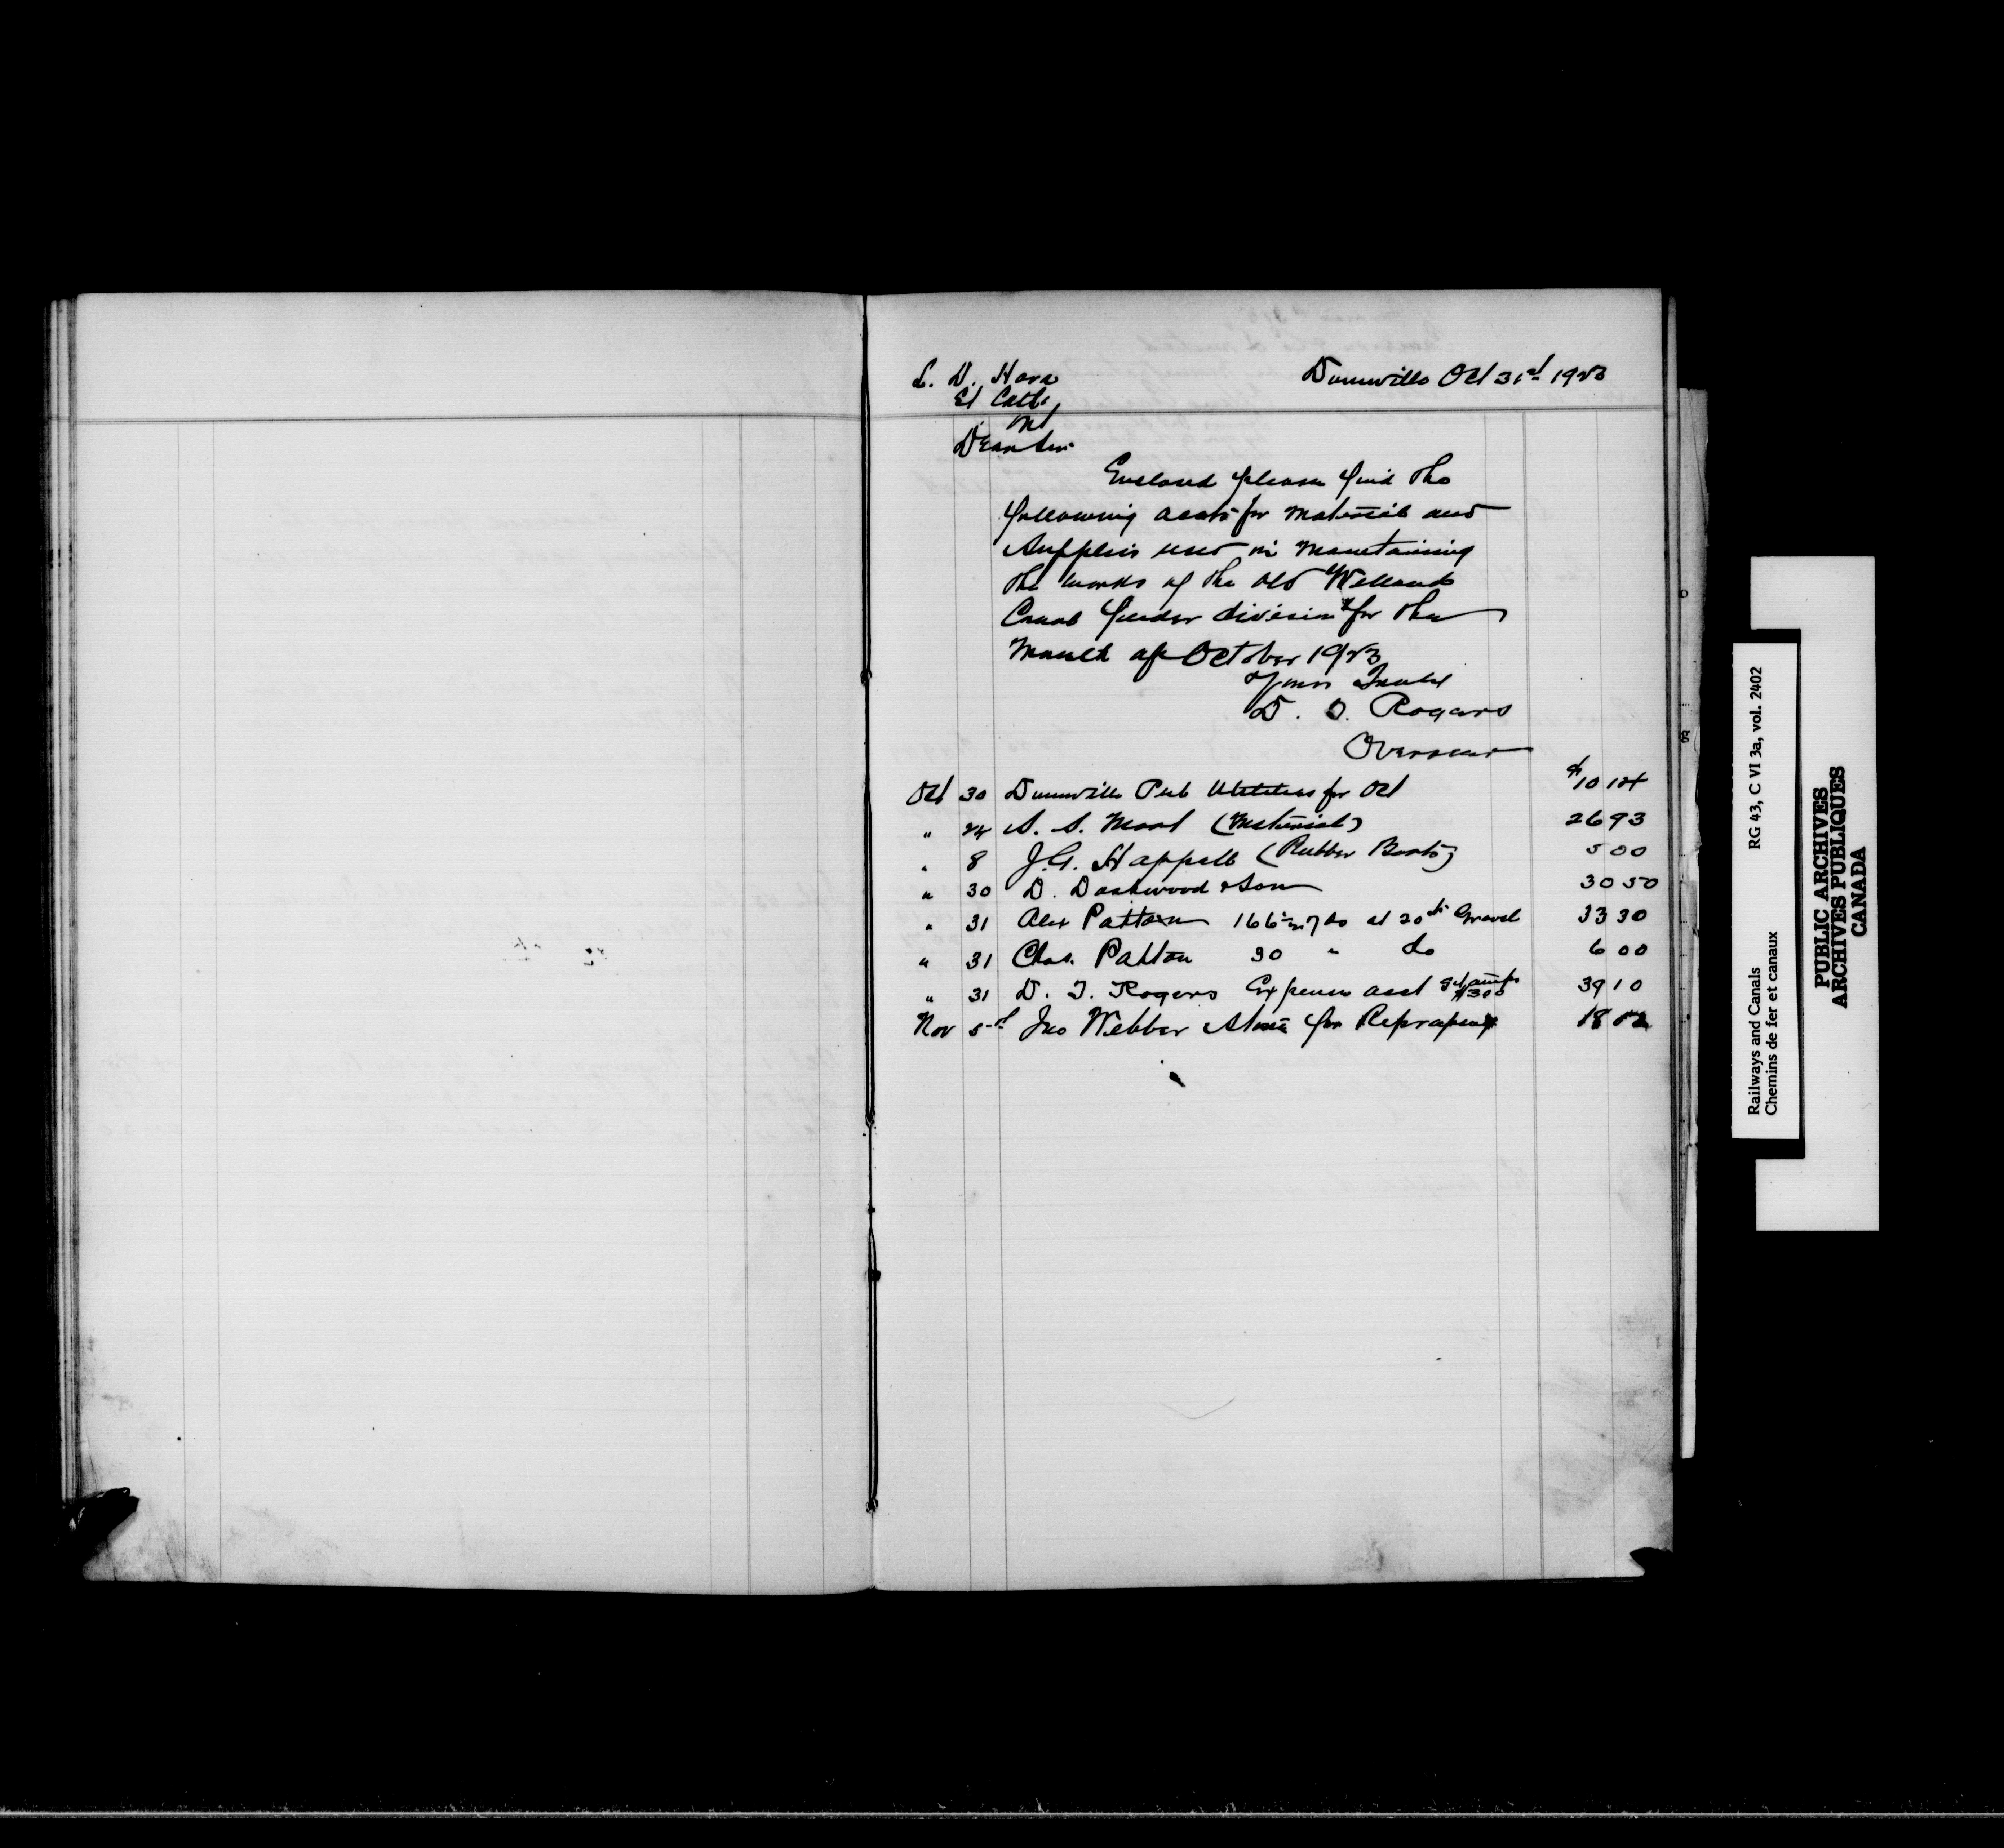 L. D. Hara
Dunnville Oct 31st 1923
St Cath,
Ont
Dear Sir
Enclosed please find the
following accts for material and
Supplies used in Maintaining
the works of the Old Welland
Canal feeder division for the
Month of October 1923
Yours Truly
D. T. Rogers
Overseer
Oct 30 Dunnville Pub Utilities for Oct $10
" 24 S. S. Moot (Material) 26 93
" 8 J. G. Happell (Rubber Boots) 5 00
" 30 D. Dashwood & Son 30 50
" 31 Alex Patton 166 1/2 yds at 20cts Gravel 33 30
" 31 Chas. Patton 30 " do 6 00
" 31 D. T. Rogers Expense acct Stamps $3 00 39 10
Nov 5th Jno Webber Stone for Reprapeng 18
RG 43, C VI 3a, vol. 2402
Railways and Canals
Chemins de fer et canaux
PUBLIC ARCHIVES
ARCHIVES PUBLIQUES
CANADA